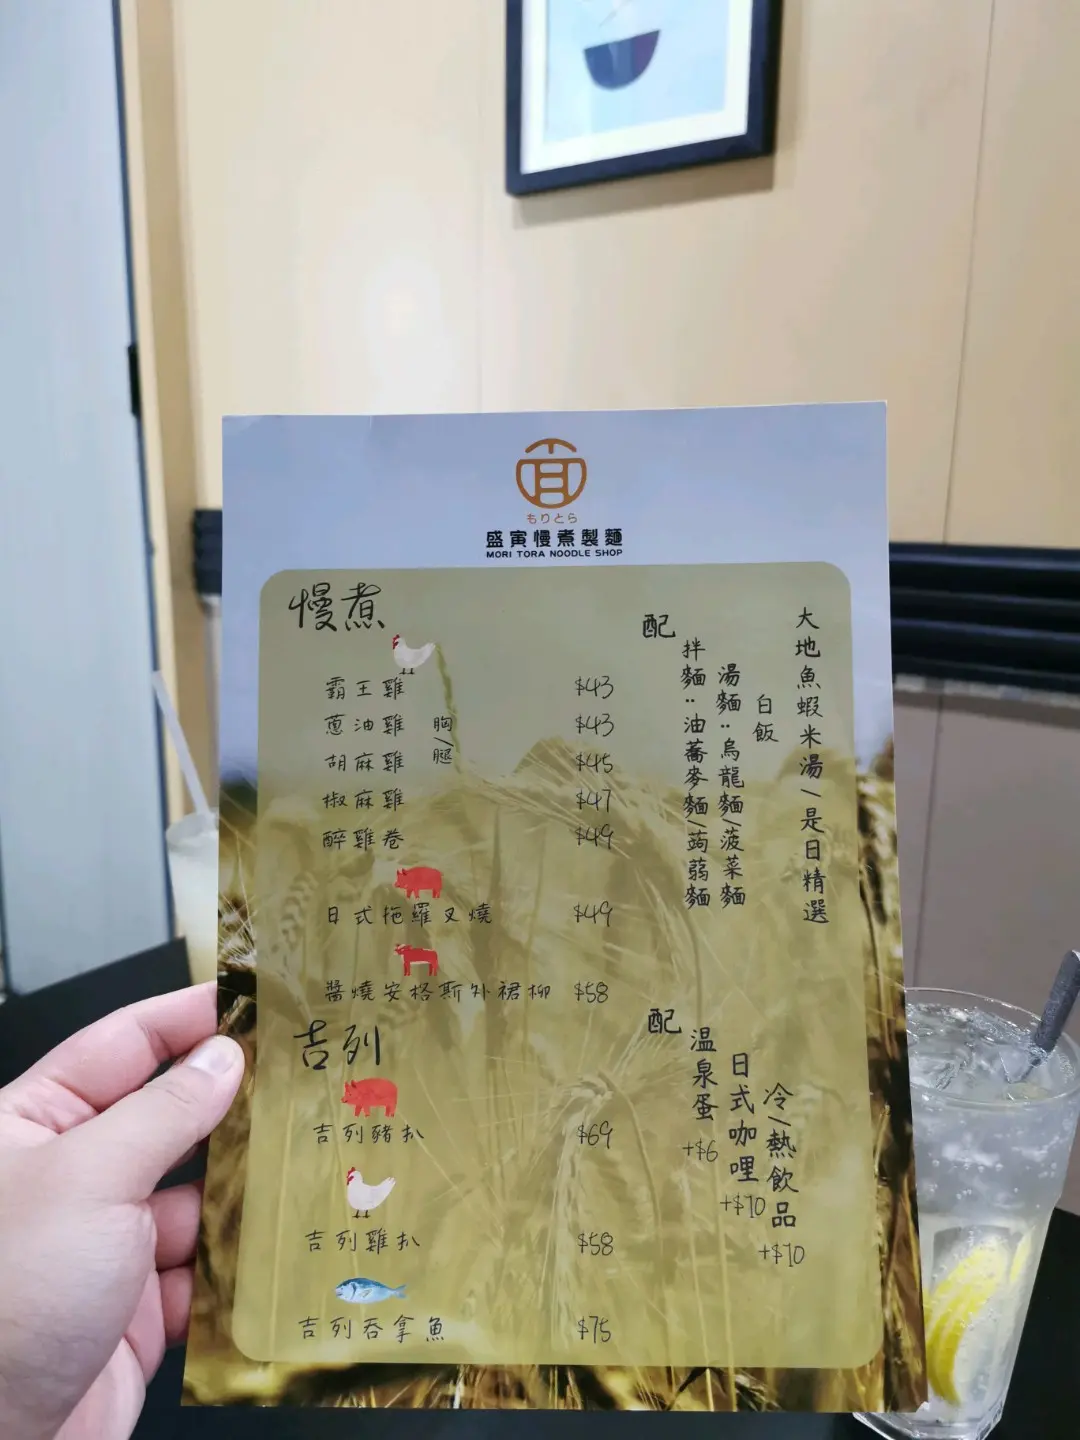 もりとら
盛寅慢煮製麵
MORI TORA NOODLE SHOP
慢煮
霸王雞 $43
蔥油雞 $43
胡麻雞 $45
胸/腿
椒麻雞 $47
醉雞卷 $49
日式拖羅叉燒 $49
醬燒安格斯外裙柳 $58
配
拌麵：油蕎麥麵/蒟蒻麵
湯麵：烏龍麵/菠菜麵
白飯
大地魚蝦米湯/是日精選
吉列
吉列豬扒 $69
吉列雞扒 $58
吉列吞拿魚 $75
配
温泉蛋 +$6
日式咖哩 +$10
冷/熱飲品 +$10